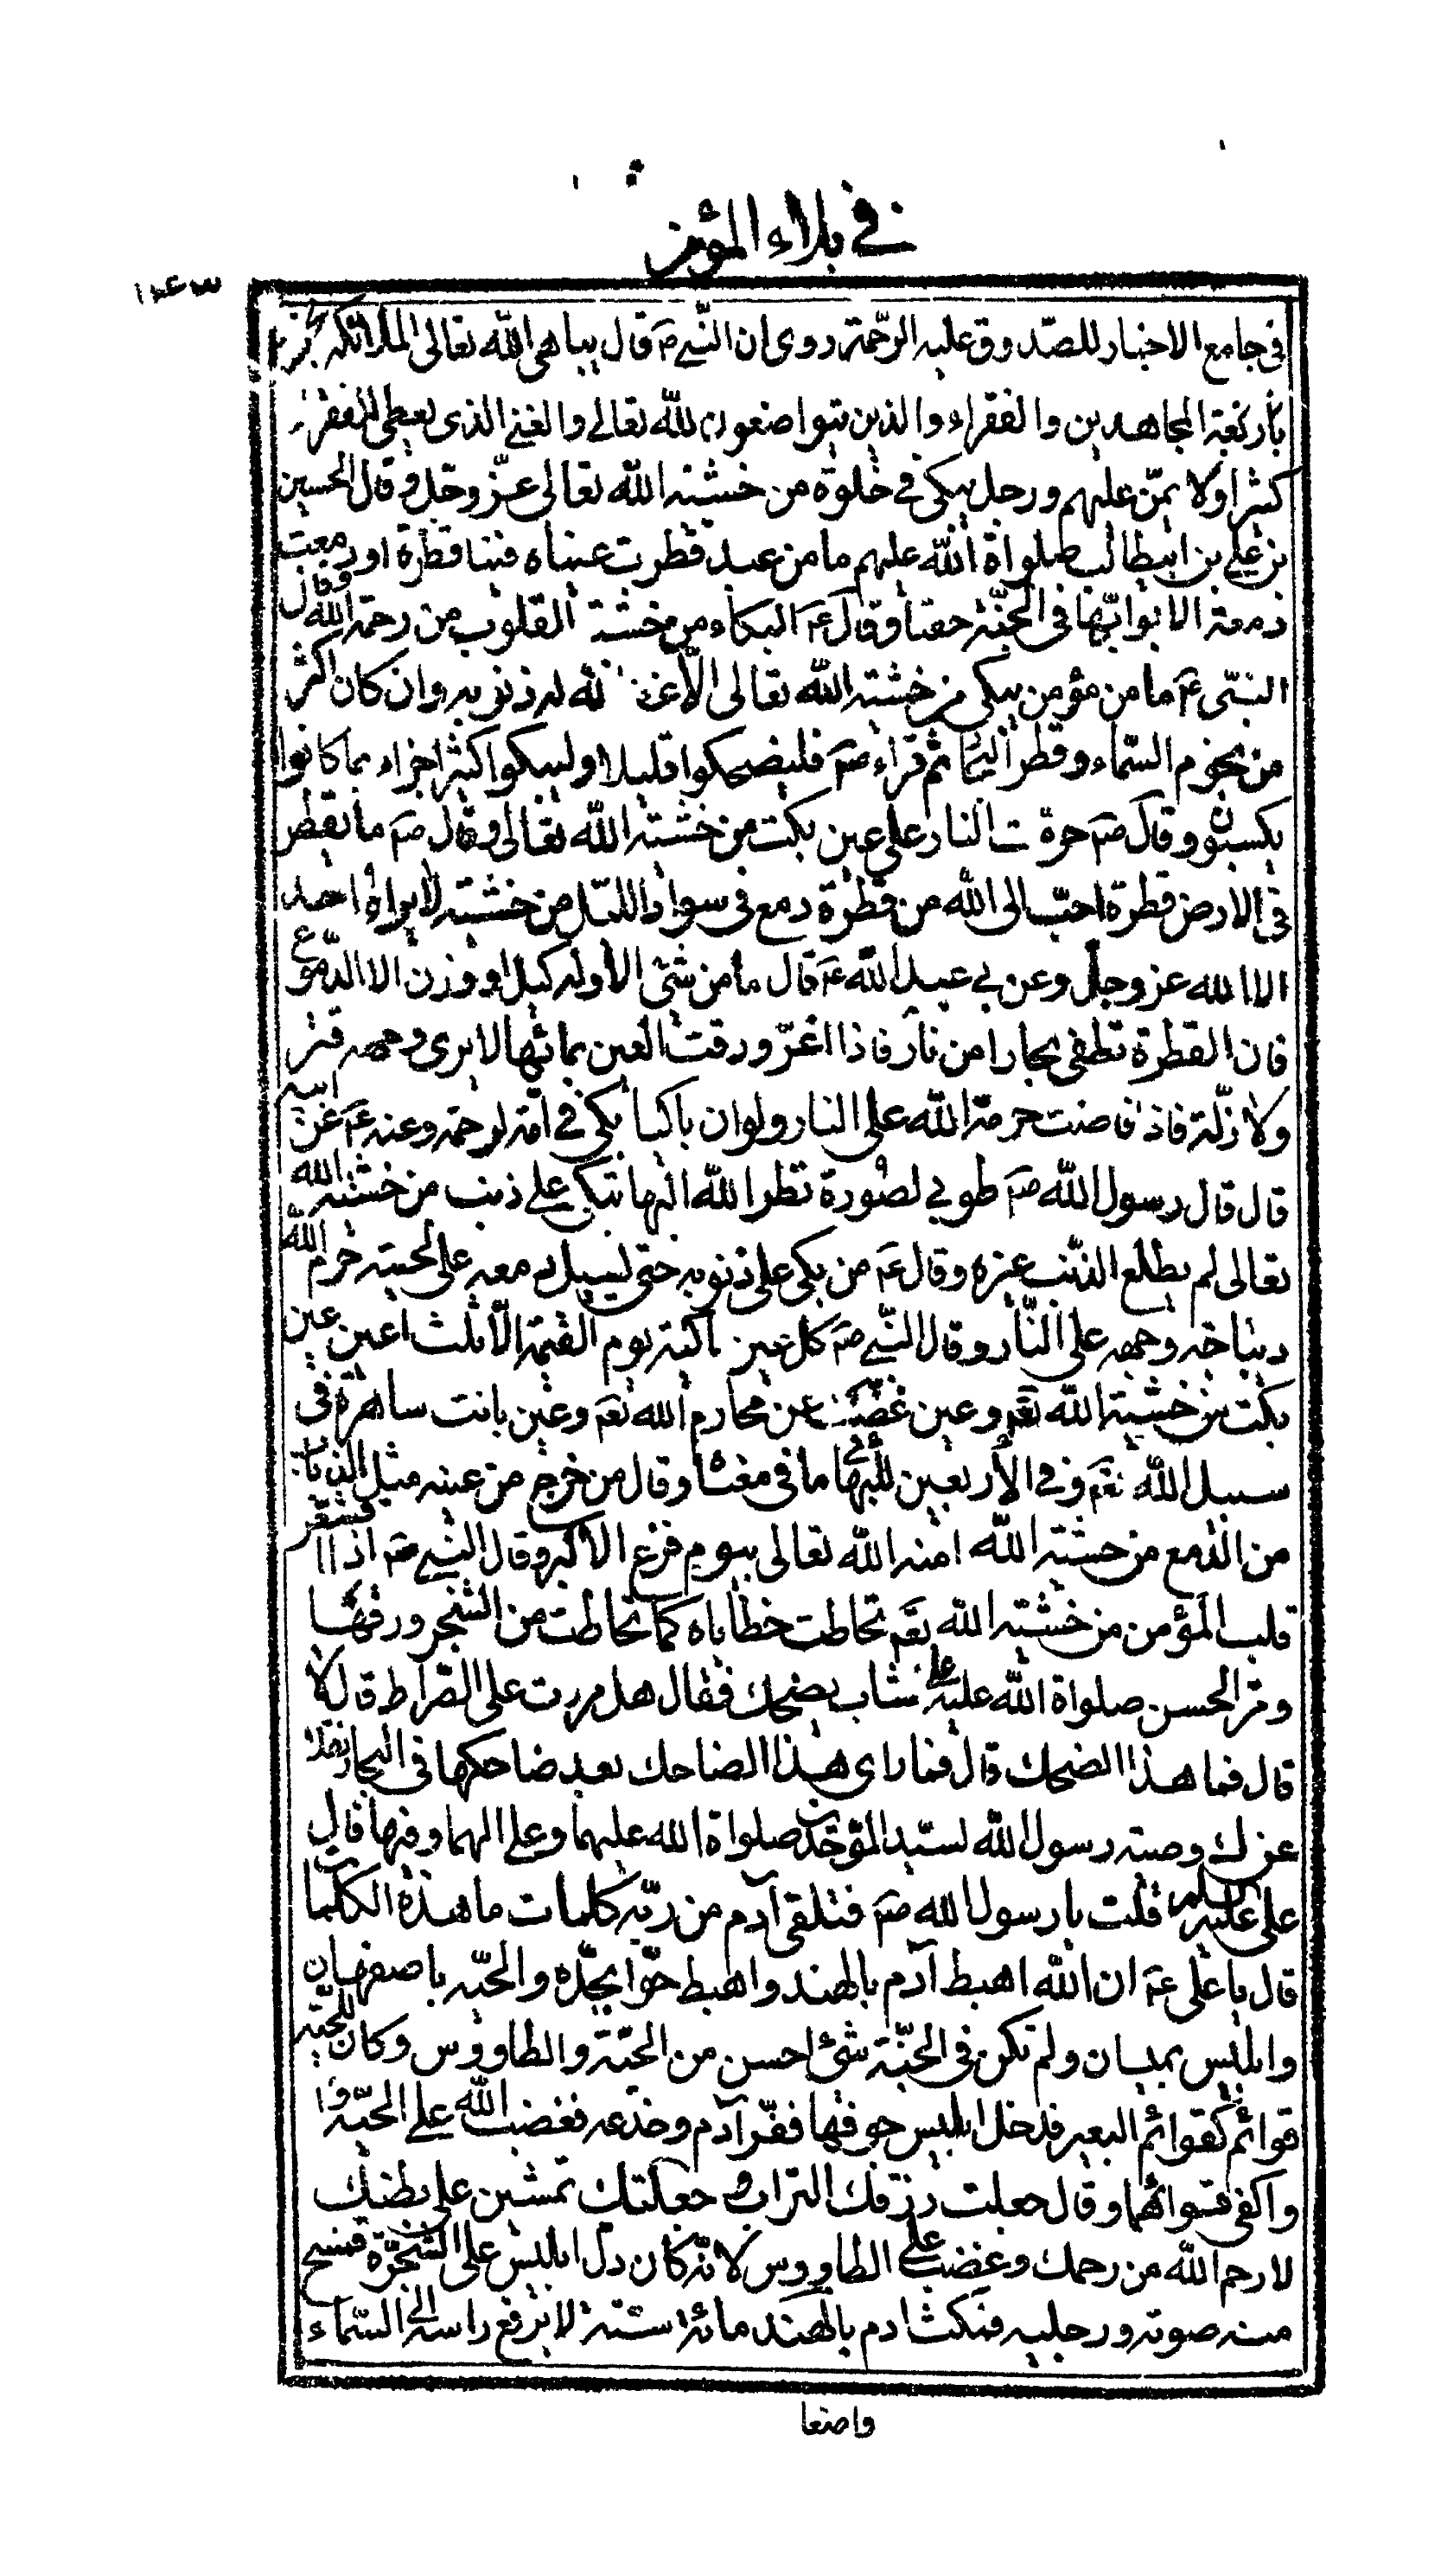 في بلاء المؤمن
في جامع الاخبار للصدوق عليه الرحمة روى ان النبي ص قال يباهى الله تعالى الملائكة
باربعة المجاهدين والفقراء والذين يتواضعون لله تعالى والغني الذى يعطى الفقراء
كثيرا ولا يمن عليهم ورجل يبكى في خلوة من خشية الله تعالى عز وجل وقال الحسين
بن علي بن ابيطالب صلواة الله عليهم ما من عبد قطرت عيناه فينا قطرة او دمعت
دمعة الا بوائه بها فى الجنة حقبا وقال ع البكاء من خشية القلوب من رحمة الله وقال
النبى ع ما من مؤمن يبكى من خشية الله تعالى الا غفر الله له ذنوبه وان كان اكثر
من نجوم السماء وقطر ثم قراء ص فليضحكوا قليلا وليبكوا كثيرا جزاء بما كانوا
يكسبون وقال ص حرمت النار على عين بكت من خشية الله تعالى وقال ص ما تقطر
فى الارض قطرة احب الى الله من قطرة دمع فى سواد الليل من خشيته لا يراه احد
الا الله عز وجل وعن بي عبد الله ع قال ما من شئ الا وله كيل او وزن الا الدموع
فان القطرة تطفى بحارا من نار فاذا اغرورقت العين بمائها لا يرى وجهه قتر
ولا ذلة فاذا فاضت حرمه الله على النار ولو ان باكيا بكى في امة لرحمة وعنه ع عن ابيه
قال قال رسول الله ص طوبي لصورة نظر الله اليها تبكى علي ذنب من خشية الله
تعالى لم يطلع الذنب غيره وقال ع من بكى على ذنوبه حتى يسيل دمعه على لحيته حرم الله
ديباجة وجهه على النار وقال النبي ص كل عين باكية يوم القيمة الا ثلث اعين عين
بكت من خشية الله تعم وعين غضت عن محارم الله تعم وعين باتت ساهرة فى
سبيل الله تعم وفي الاربعين للبهائى ما فى معناه وقال من خرج من عينه مثل الذباب
من الدمع من خشية الله امنه الله تعالى بيوم فزع الاكبر وقال النبي ص اذا اقشعر
قلب المؤمن من خشية الله تعم تحاطت خطاياه كما تحاطت من الشجر ورقها
ومر الحسن صلواة الله عليه على شاب يضحك فقال هل مررت على الصراط قال لا
قال فما هذا الضحك قال فما راى هذا الضاحك بعد ضاحكها فى البحار نقلا
عن ك وصية رسول الله لسيد الموحدين صلواة الله عليهما وعلى الهما وفيها قال
على عليه السلم قلت يا رسول الله ص فتلقى آدم من ربه كلمات ما هذه الكلمات
قال يا على ع ان الله اهبط آدم بالهند واهبط حوا بجده والحية باصفهان
وابليس بميسان ولم تكن فى الجنة شئ احسن من الحية والطاووس وكان للحية
قوائم كقوائم البعير فدخل ابليس جوفها فغر آدم وخدعه فغضب الله على الحية وا
والقى قوائمها وقال جعلت رزقك التراب وجعلتك تمشين على بطنك
لا رحم الله من رحمك وغضب على الطاووس لانه كان دل ابليس على الشجرة فمسخ
منه صوته ورجليه فمكث ادم بالهند مائة سنة لا يرفع راسه الى السماء
واضعا